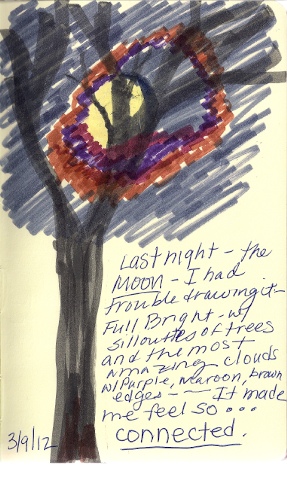 Last night - the
MOON - I had
trouble drawing it -
Full Bright - w/
sillouttes of trees
and the most
amazing clouds
w/ Purple, Maroon, brown
edges - - It made
me feel so ...
connected.
3/9/12